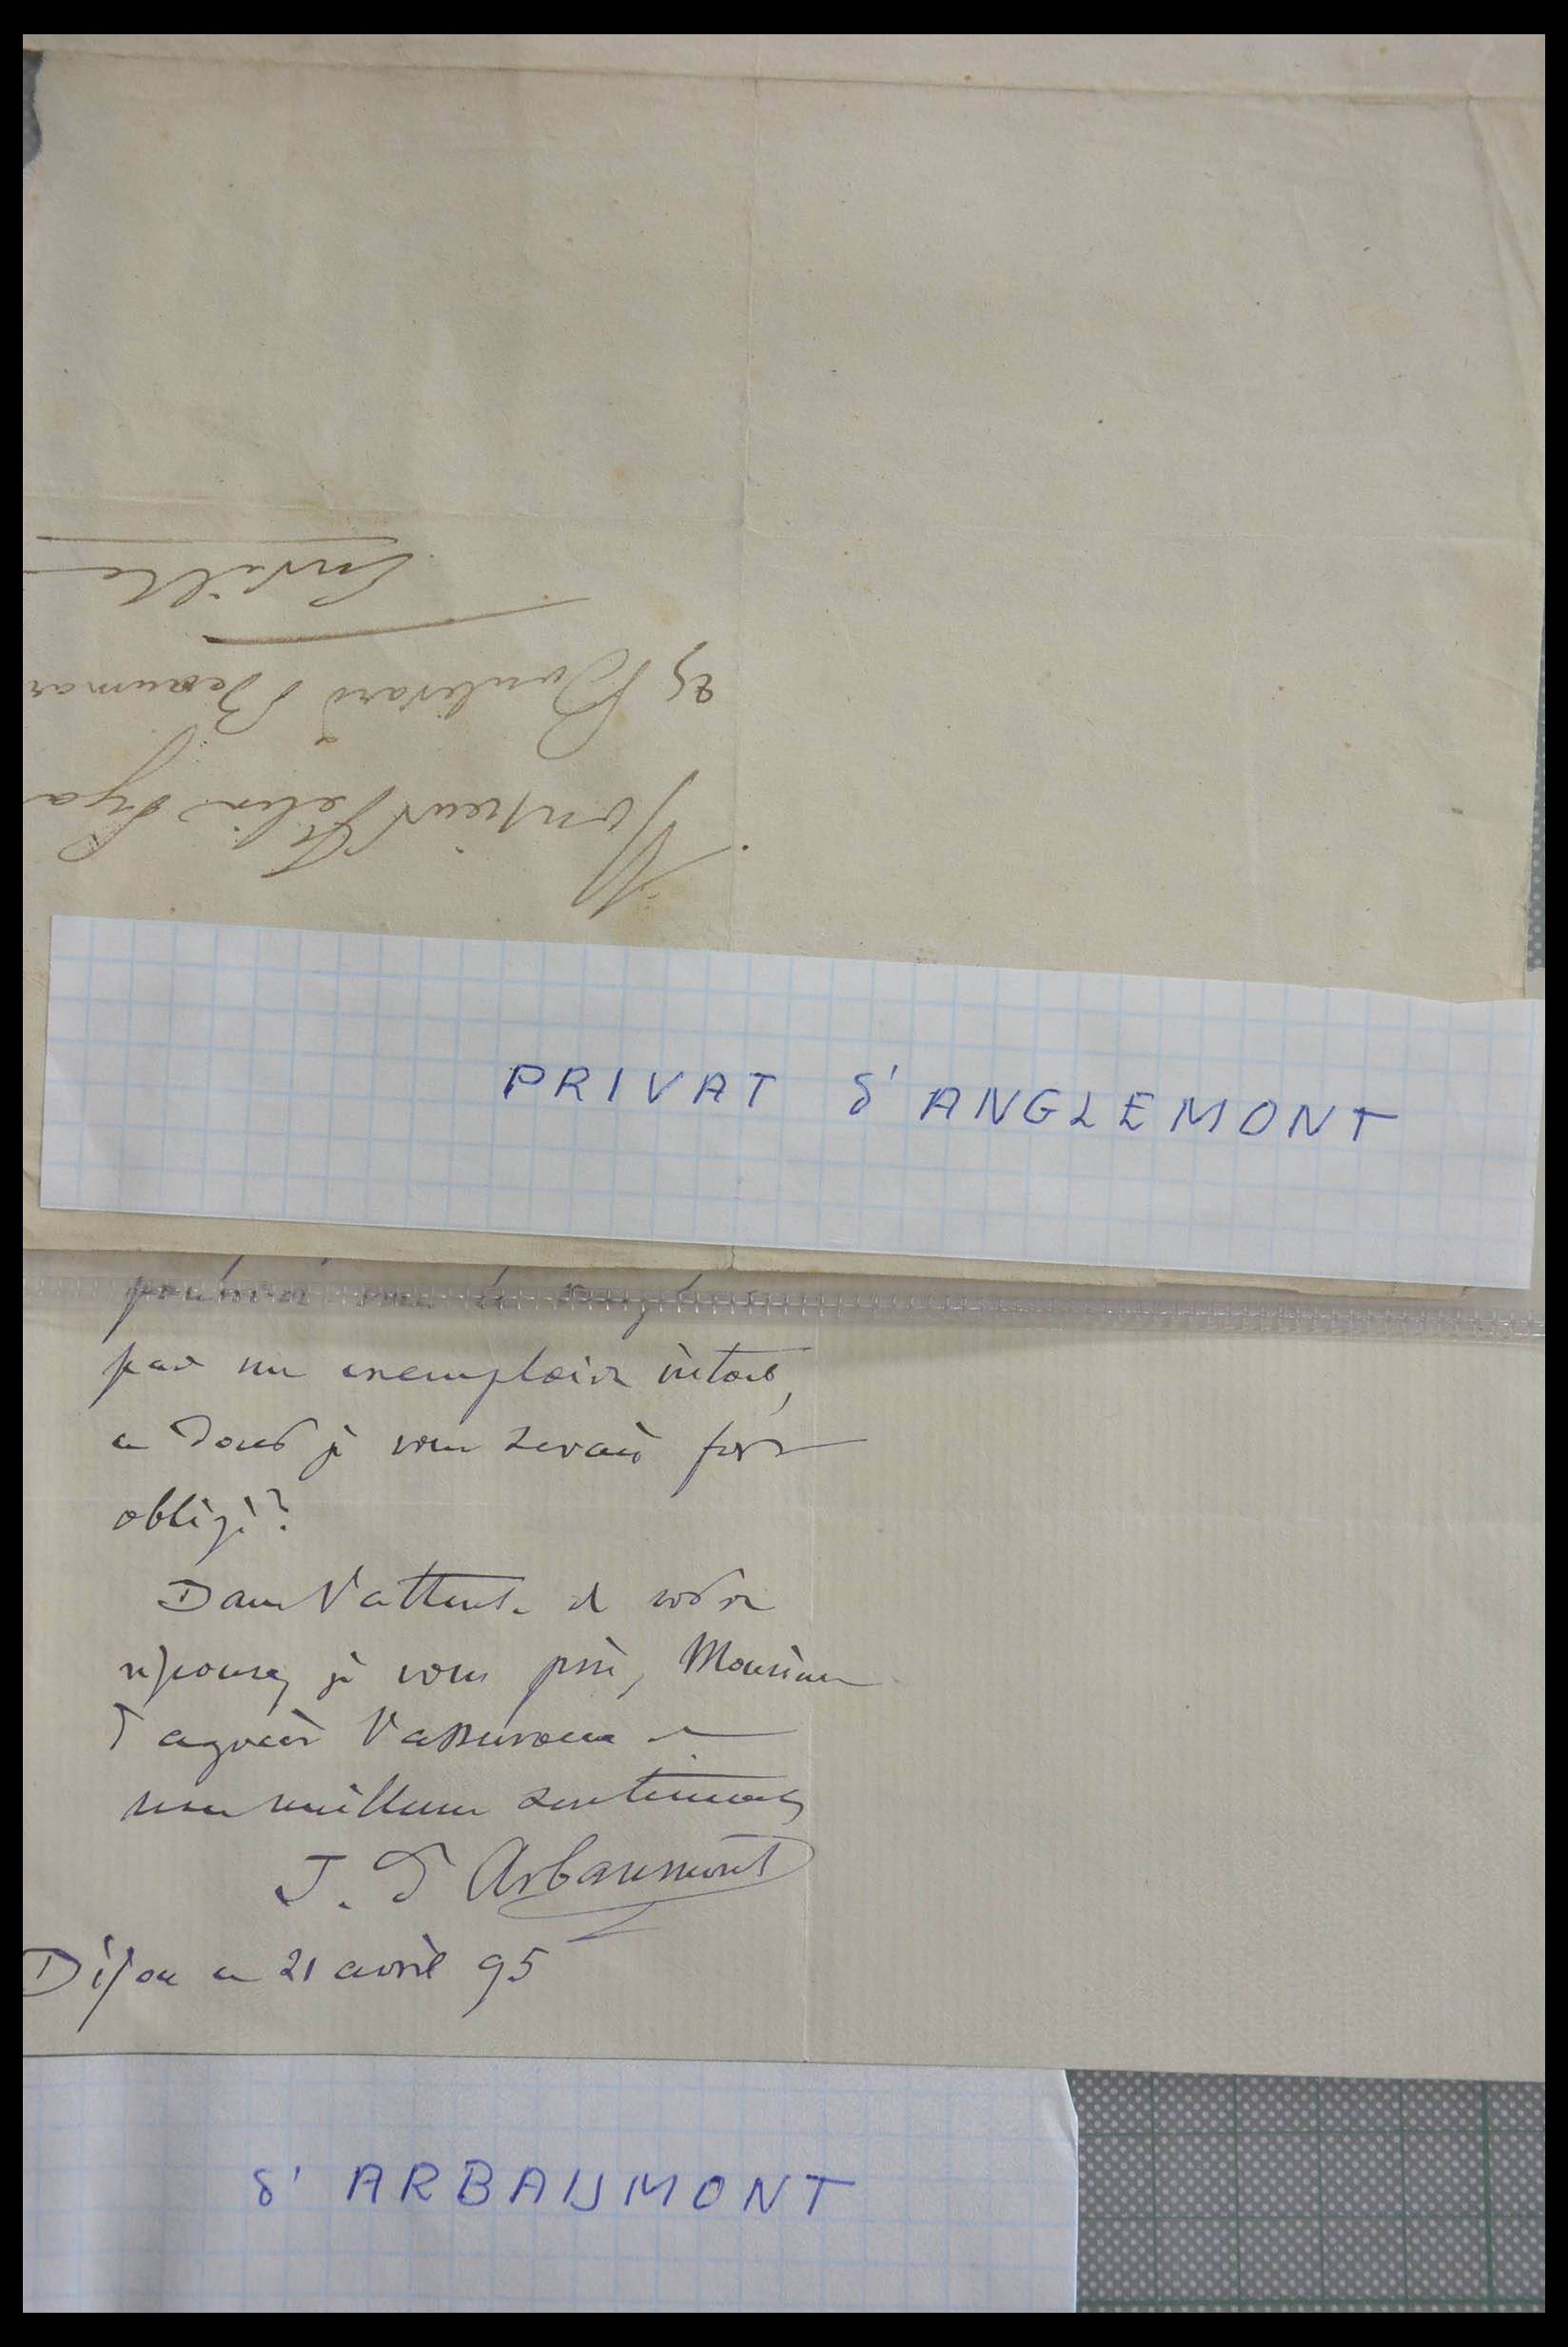 Monsieur Félix
25 Boulevard Beaumar
En ville
PRIVAT d'ANGLEMONT
par un exemplaire intact,
ce dont je vous serais fort
obligé?
Dans l'attente de votre
réponse, je vous prie, Monsieur
d'agréer l'assurance de
mes meilleurs sentiments
J. d'Arbaumont
Dijon ce 21 avril 95
d'ARBAUMONT